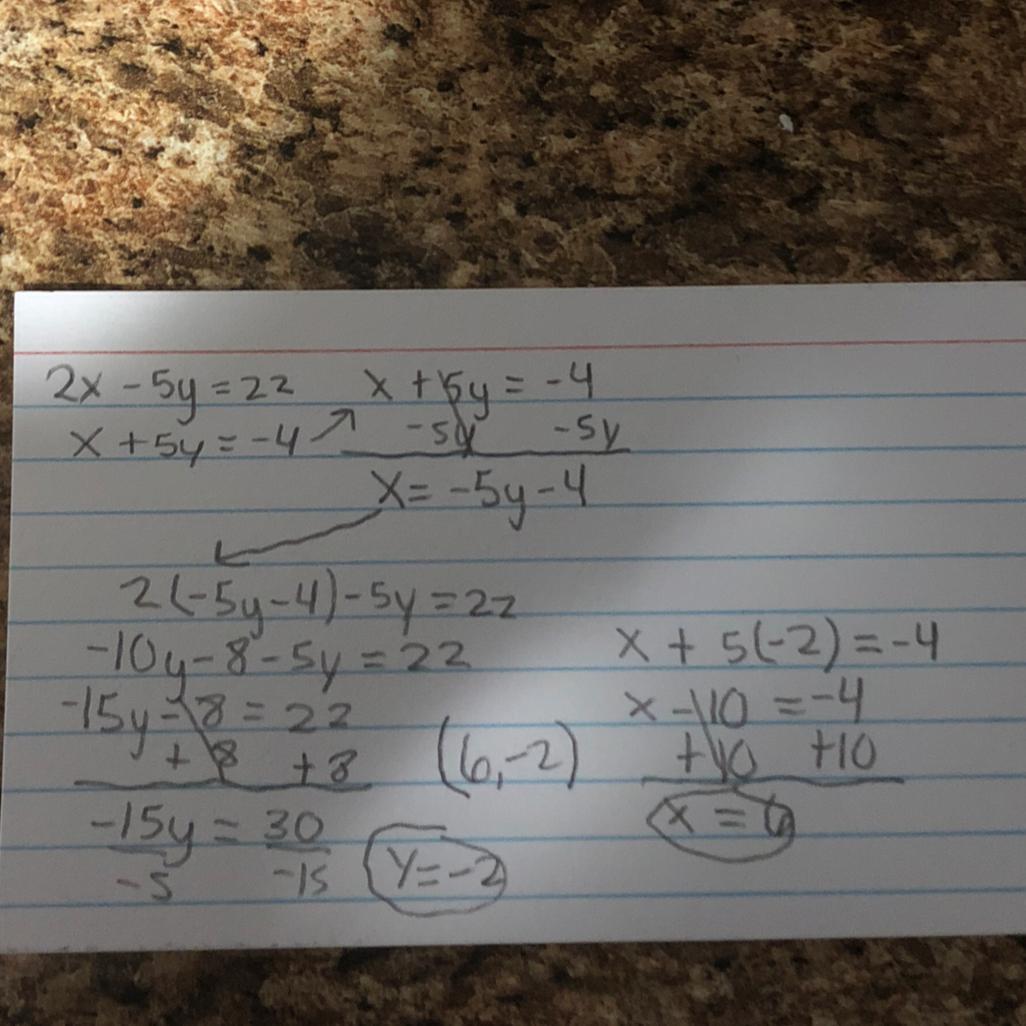 2x - 5y = 22
x + 5y = -4
x + 5y = -4
-5y -5y
x = -5y - 4
2(-5y-4) - 5y = 22
-10y - 8 - 5y = 22
-15y - 8 = 22
+ 8 + 8
-15y = 30
-5 -15
y = -2
(6, -2)
x + 5(-2) = -4
x - 10 = -4
+10 +10
x = 6